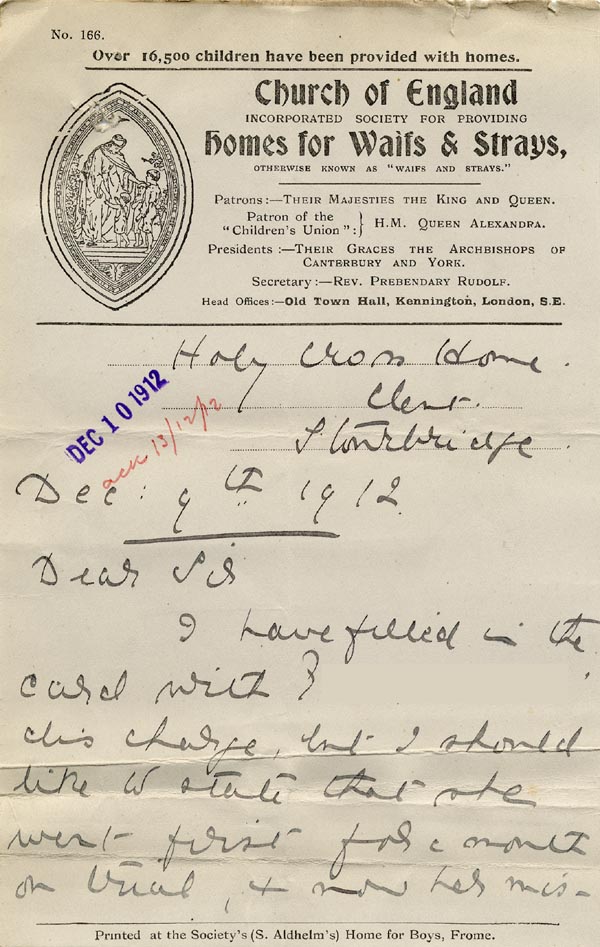 No. 166.
Over 16,500 children have been provided with homes.
Church of England
INCORPORATED SOCIETY FOR PROVIDING
Homes for Waifs & Strays,
OTHERWISE KNOWN AS "WAIFS AND STRAYS."
Patrons:—THEIR MAJESTIES THE KING AND QUEEN.
Patron of the "Children's Union":} H.M. QUEEN ALEXANDRA.
Presidents:—THEIR GRACES THE ARCHBISHOPS OF
CANTERBURY AND YORK.
Secretary:—REV. PREBENDARY RUDOLF.
Head Offices:—Old Town Hall, Kennington, London, S.E.
Holy Cross Home.
Clent.
Stourbridge.
DEC 10 1912
ack 13/12/12
Dec: 9th 1912
Dear Sir
I have filled in the
card with
dis charge, but I should
like to state that she
went first for a month
on trial, & now her mis-
Printed at the Society's (S. Aldhelm's) Home for Boys, Frome.